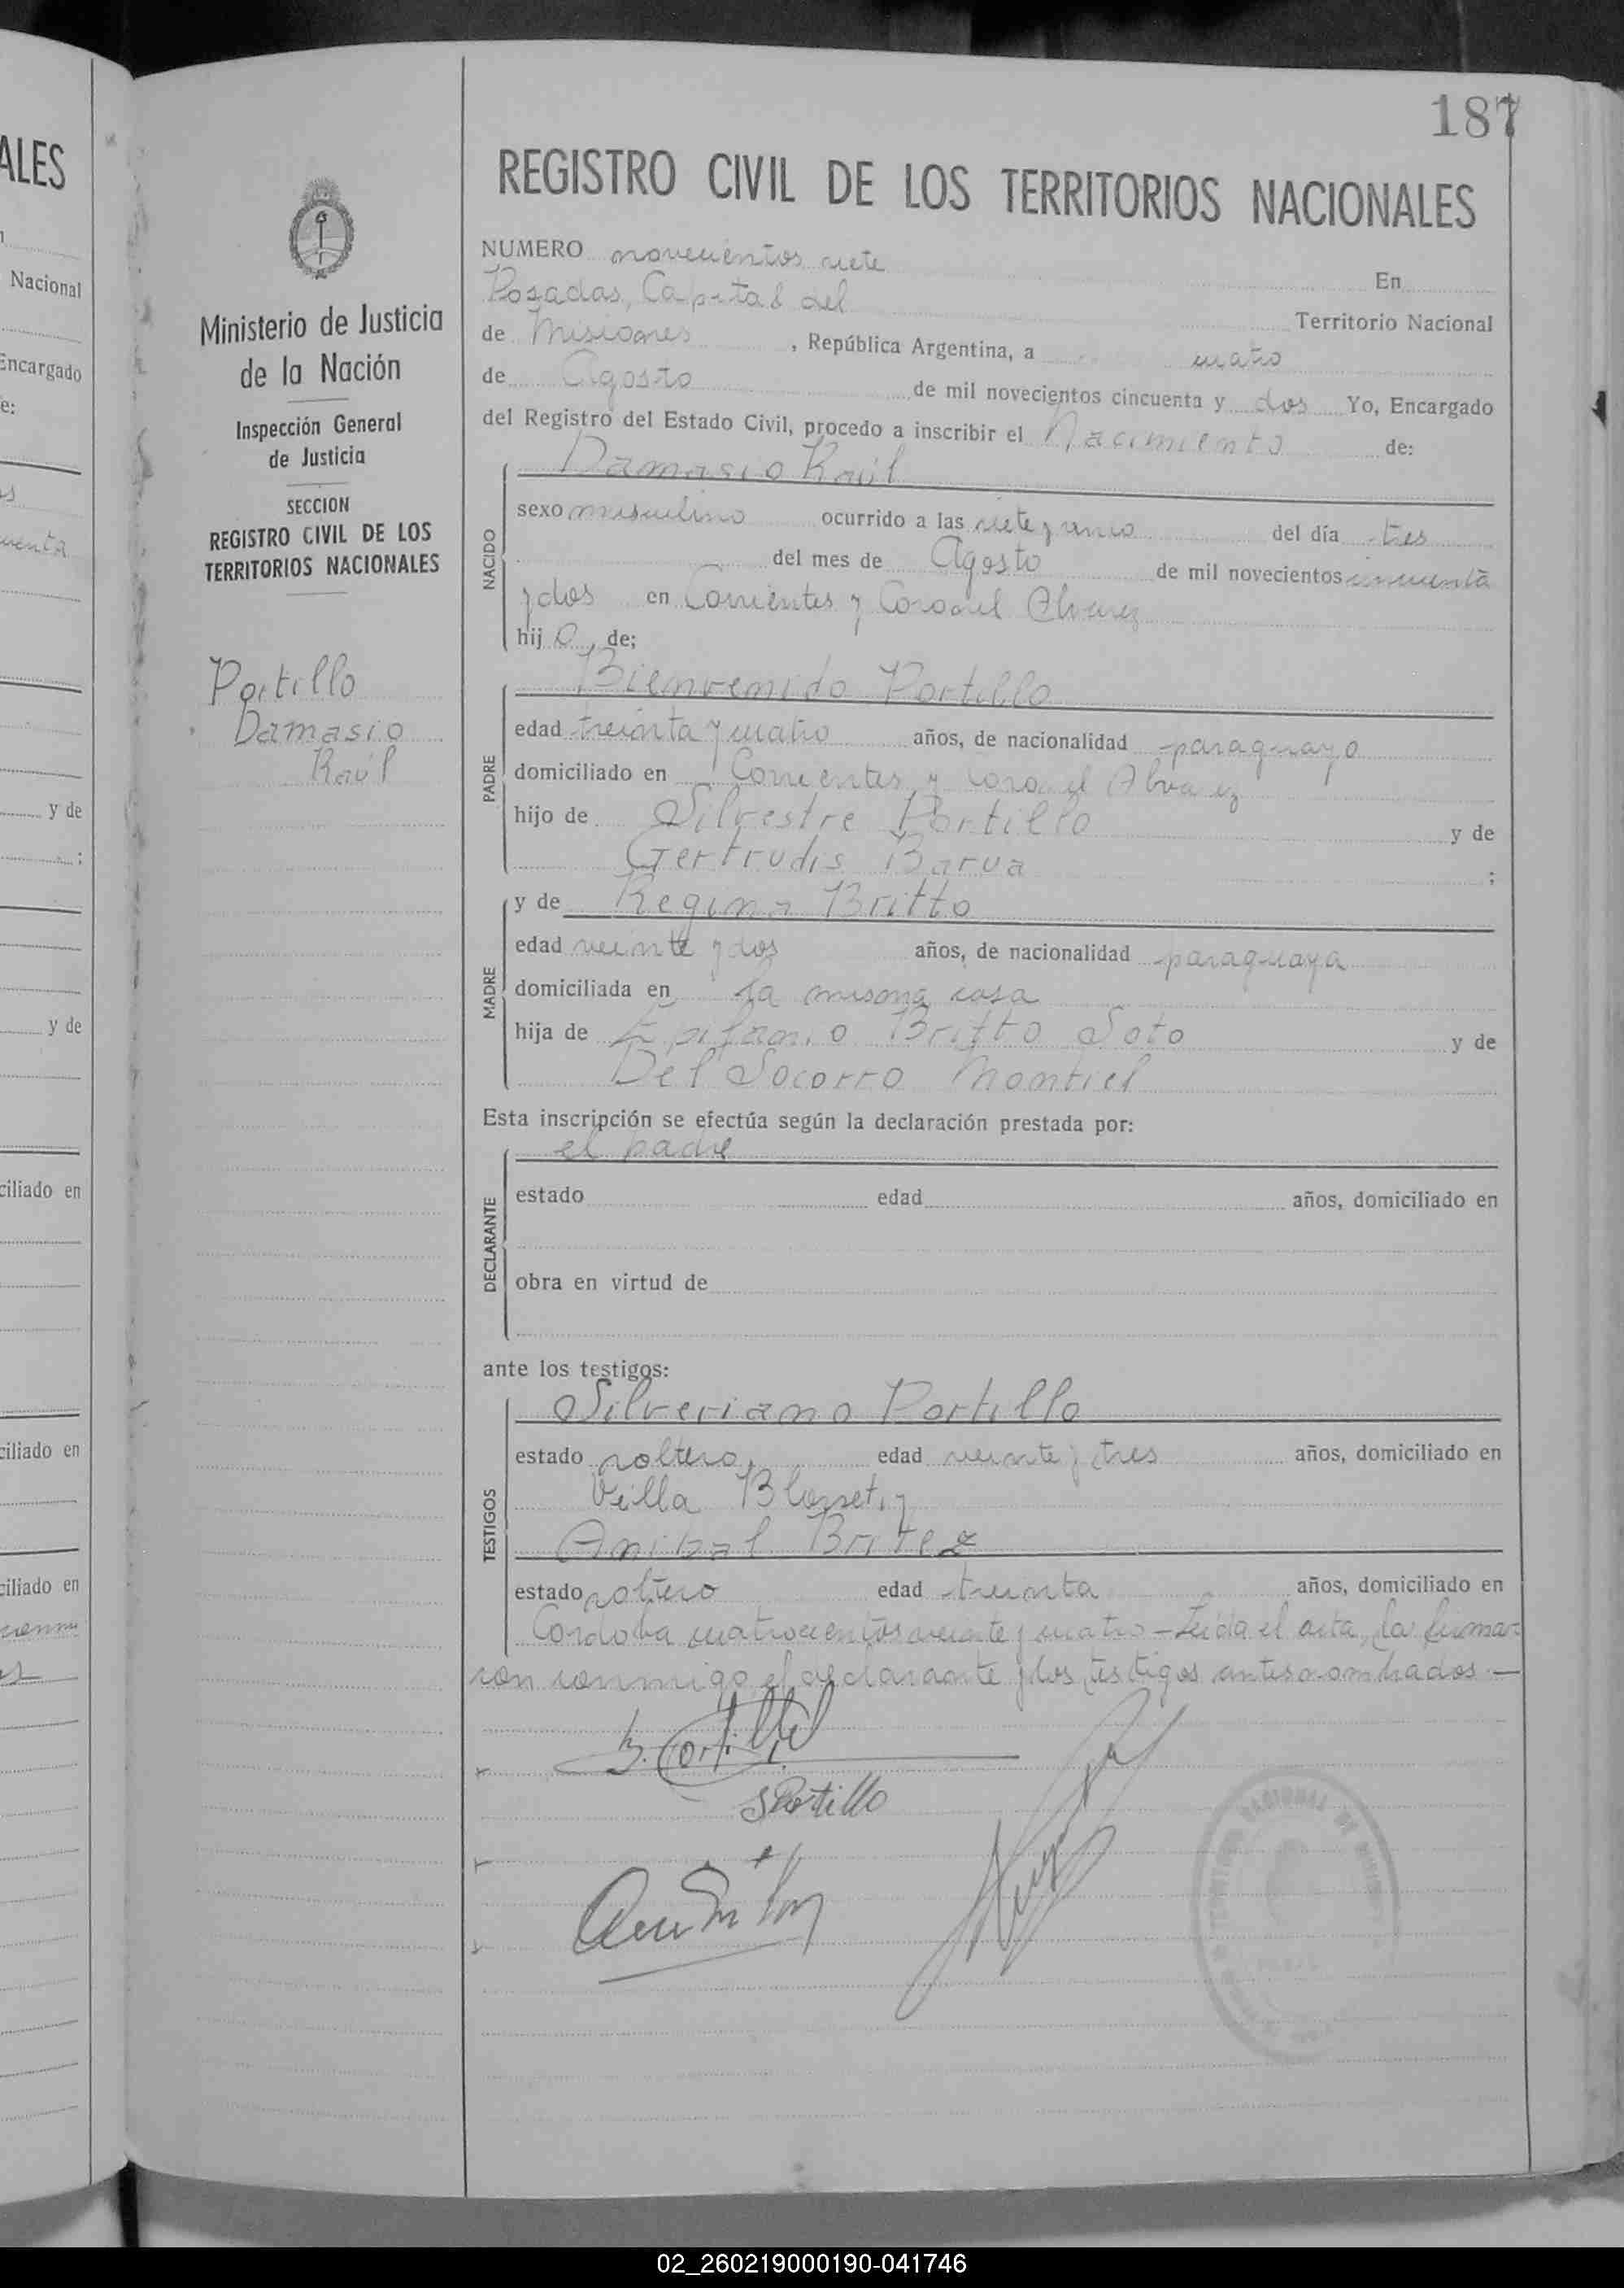 187
REGISTRO CIVIL DE LOS TERRITORIOS NACIONALES
NUMERO novecientos siete
En
Posadas, Capital del
Territorio Nacional
de Misiones, República Argentina, a cuatro
de Agosto de mil novecientos cincuenta y dos Yo, Encargado
del Registro del Estado Civil, procedo a inscribir el Nacimiento de:
NACIDO
Damasio Raúl
sexo masculino ocurrido a las siete y del día tres
del mes de Agosto de mil novecientos cincuenta
y dos en Corrientes y Coronel Alvarez
hijo de;
PADRE
Bienvenido Portillo
edad treinta y cuatro años, de nacionalidad paraguayo
domiciliado en Corrientes y Coronel Alvarez
hijo de Silvestre Portillo y de
Gertrudis Barua ;
MADRE
y de Regina Britto
edad veinte y dos años, de nacionalidad paraguaya
domiciliada en la misma casa
hija de Epifanio Britto Soto y de
Del Socorro Montiel
Esta inscripción se efectúa según la declaración prestada por:
DECLARANTE
el padre
estado edad años, domiciliado en
obra en virtud de
ante los testigos:
TESTIGOS
Silveriano Portillo
estado soltero, edad veinte y tres años, domiciliado en
Villa Blosset, y
Anibal Britez
estado soltero edad treinta años, domiciliado en
Cordoba cuatrocientos veinte y cuatro - Leida el acta, la firma=
ron conmigo el declarante y los testigos antes nombrados. —
B. Portillo
S Portillo
Ministerio de Justicia
de la Nación
Inspección General
de Justicia
SECCION
REGISTRO CIVIL DE LOS
TERRITORIOS NACIONALES
Portillo
Damasio
Raúl
ALES
Nacional
Encargado
e:
y de
;
y de
ciliado en
ciliado en
ciliado en
02_260219000190-041746